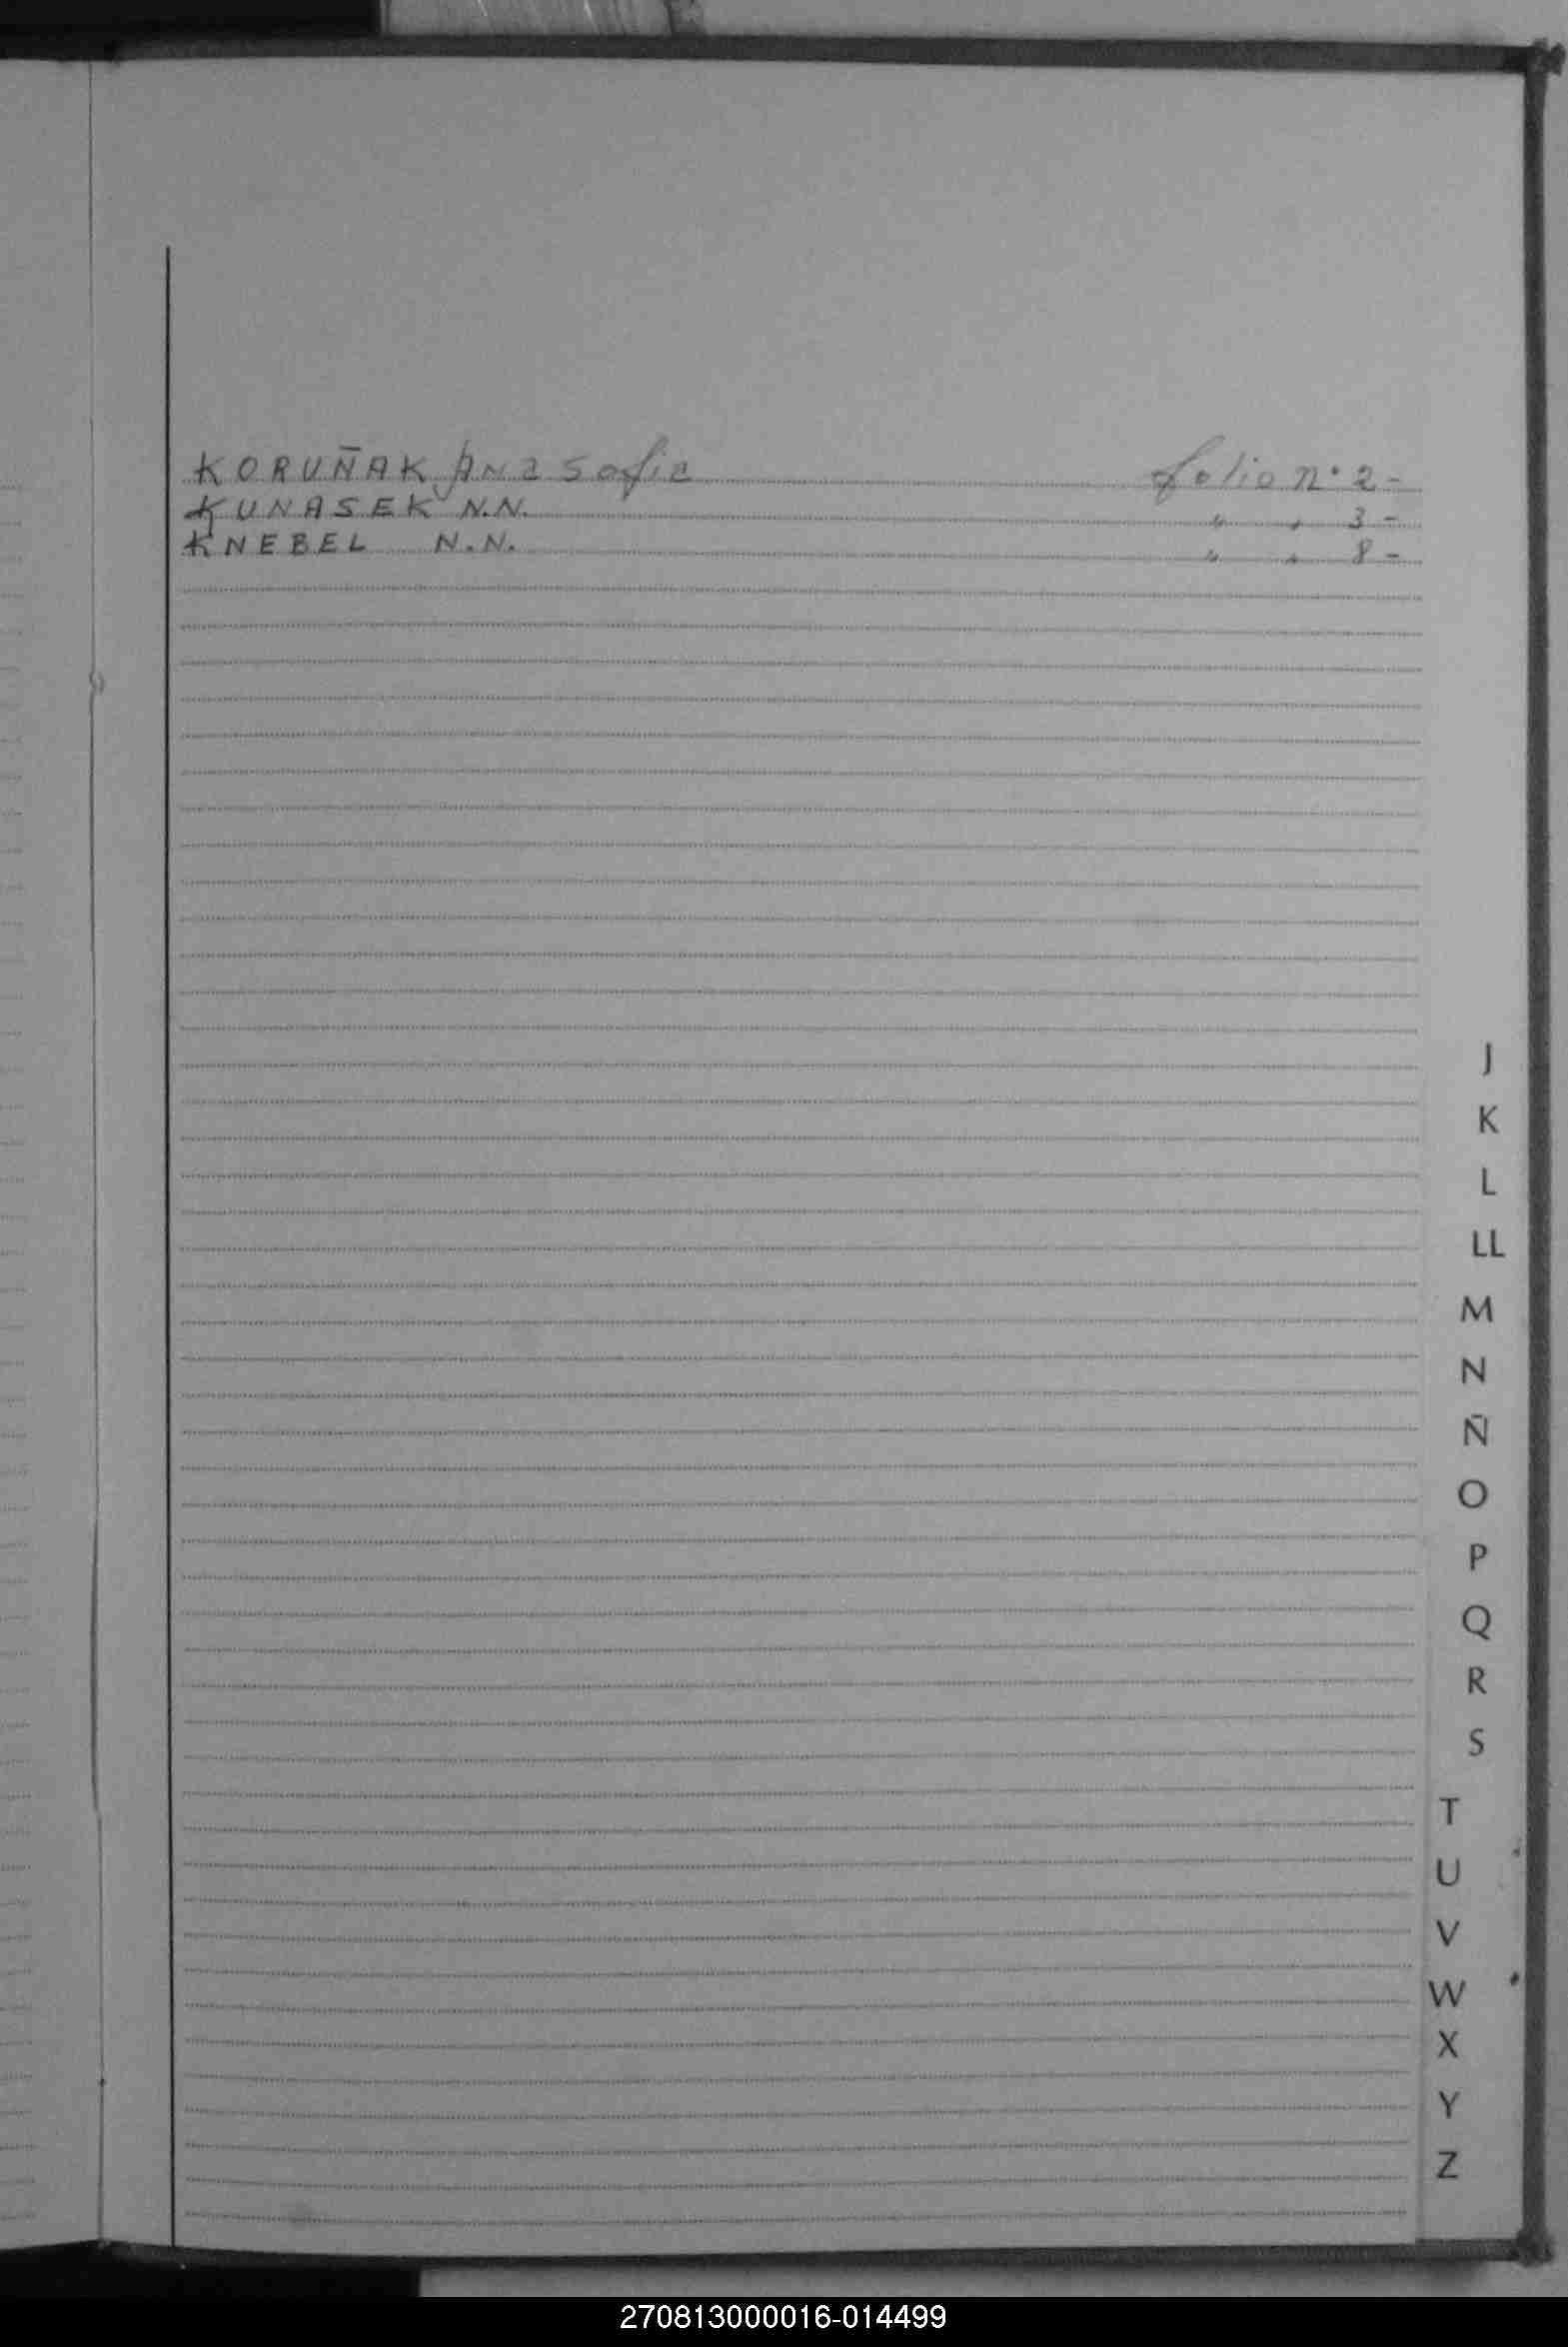 KORUÑAK Ana Sofia folio n° 2-
KUNASEK N.N. " " 3-
KNEBEL N.N. " " 8-
J
K
L
LL
M
N
Ñ
O
P
Q
R
S
T
U
V
W
X
Y
Z
270813000016-014499